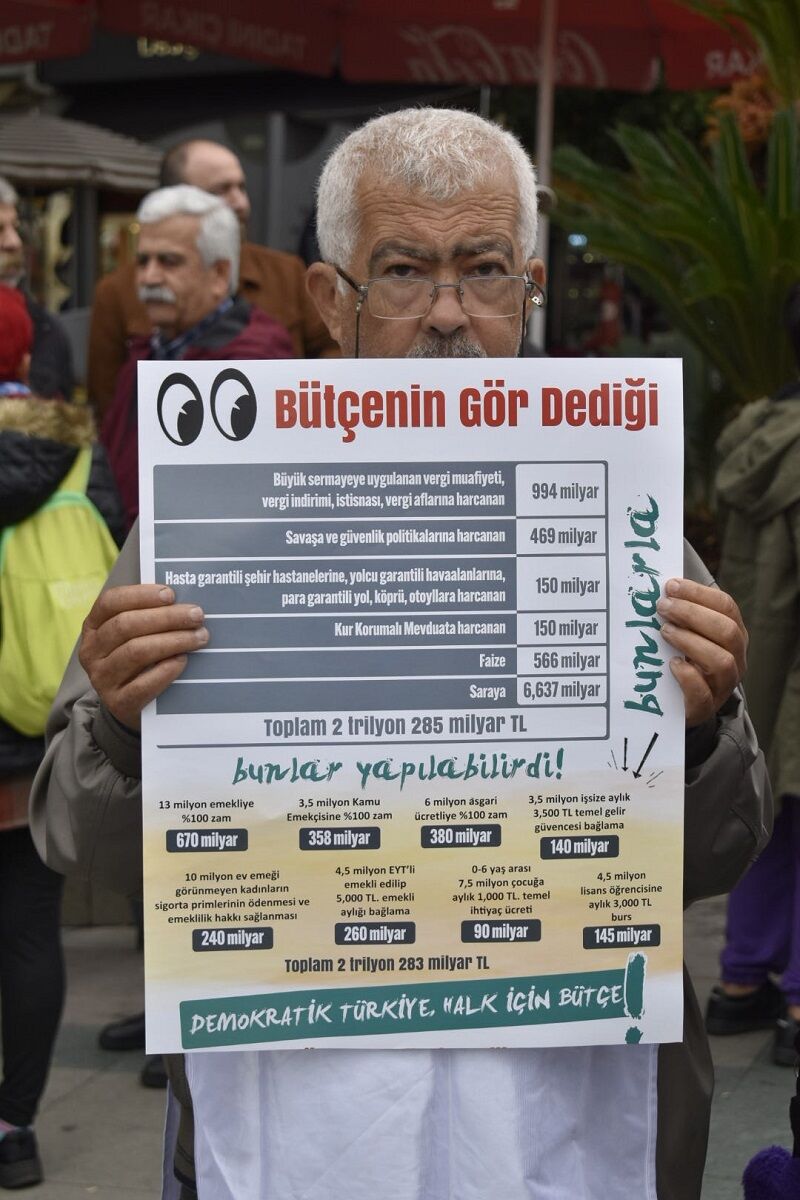 TADINI ÇIKAR
Coca-Cola
TADINI ÇIKAR
Bütçenin Gör Dediği
Büyük sermayeye uygulanan vergi muafiyeti,
vergi indirimi, istisnası, vergi aflarına harcanan
994 milyar
Savaşa ve güvenlik politikalarına harcanan
469 milyar
Hasta garantili şehir hastanelerine, yolcu garantili havaalanlarına,
para garantili yol, köprü, otoyllara harcanan
150 milyar
Kur Korumalı Mevduata harcanan
150 milyar
Faize
566 milyar
Saraya
6,637 milyar
Toplam 2 trilyon 285 milyar TL
bunlarla
bunlar yapılabilirdi!
13 milyon emekliye
%100 zam
670 milyar
3,5 milyon Kamu
Emekçisine %100 zam
358 milyar
6 milyon asgari
ücretliye %100 zam
380 milyar
3,5 milyon işsize aylık
3,500 TL temel gelir
güvencesi bağlama
140 milyar
10 milyon ev emeği
görünmeyen kadınların
sigorta primlerinin ödenmesi ve
emeklilik hakkı sağlanması
240 milyar
4,5 milyon EYT'li
emekli edilip
5,000 TL. emekli
aylığı bağlama
260 milyar
0-6 yaş arası
7,5 milyon çocuğa
aylık 1,000 TL. temel
ihtiyaç ücreti
90 milyar
4,5 milyon
lisans öğrencisine
aylık 3,000 TL
burs
145 milyar
Toplam 2 trilyon 283 milyar TL
DEMOKRATİK TÜRKİYE, HALK İÇİN BÜTÇE!